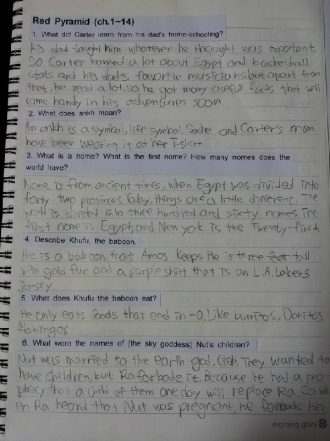 Red Pyramid (ch.1~14)
1. What did Carter learn from his dad's home-schooling?
His dad taught him whatever he thought was important.
So Carter learned a lot about Egypt and basketball
stats and his dad's favorite musicians but apart from
that, he read a lot, so he got many useful facts that will
come handy in his adventures soon
2. What does ankh mean?
An ankh is a symbol, life symbol. Sadie and Carter's mom
have been wearing it at her T-shirt.
3. What is a nome? What is the first nome? How many nomes does the
world have?
Nome is from ancient times, when Egypt was divided into
forty two provinces. Today, things are a little different. The
world is divided into three hundred and sixty nomes. The
first nome is Egypt and New York is the Twenty-first
4. Describe Khufu, the baboon.
He is a baboon that Amos keeps. He is three foot tall
with gold fur and a purple shirt that is an L.A. Lakers
Jersey
5. What does Khufu the baboon eat?
He only eats foods that end in -o, like burritos, Doritos,
flamingos
6. What were the names of (the sky goddess) Nut's children?
Nut was married to the earth god, Geb. They wanted to
have children, but Ra forbade it. Because he had a pro-
phecy that a child of them one day will replace Ra so wh
en Ra heard that Nut was pregnant, he forbade her
morning glory